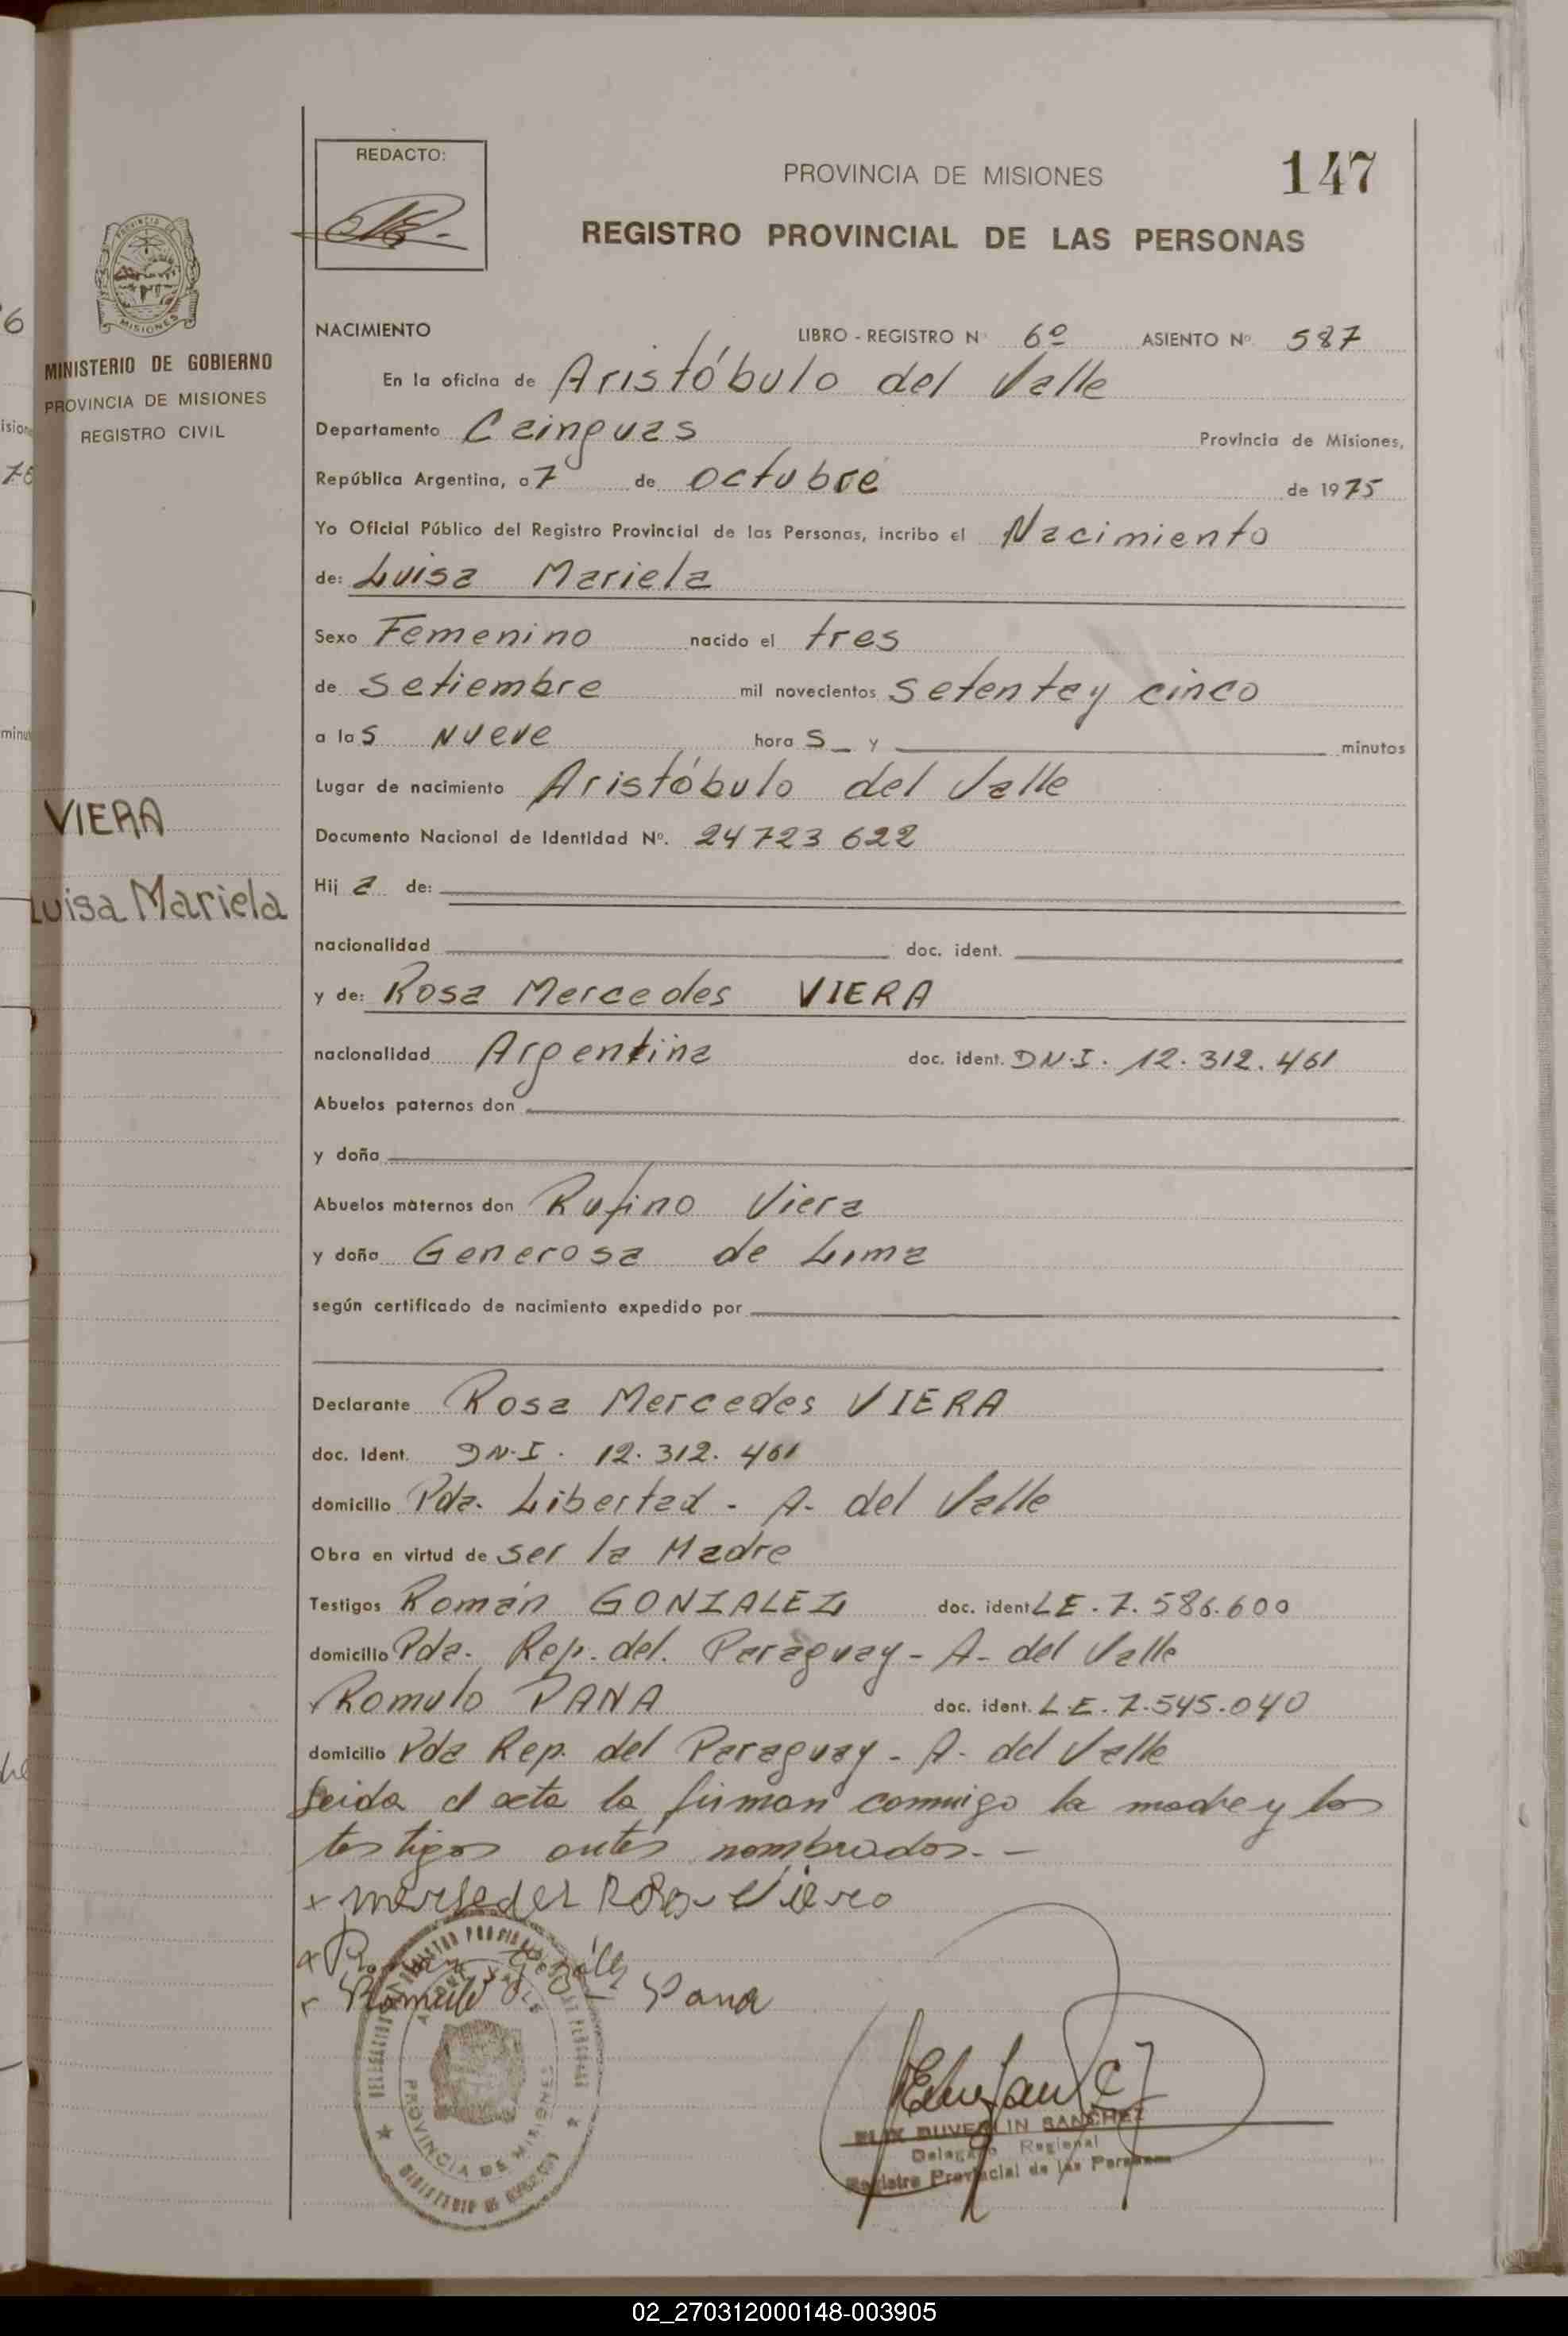 REDACTO:
PROVINCIA DE MISIONES
147
REGISTRO PROVINCIAL DE LAS PERSONAS
MISIONES
MINISTERIO DE GOBIERNO
PROVINCIA DE MISIONES
REGISTRO CIVIL
NACIMIENTO LIBRO - REGISTRO Nº 6º ASIENTO Nº 587
En la oficina de Aristóbulo del Valle
Departamento Cainguas Provincia de Misiones,
República Argentina, a 7 de octubre de 1975
Yo Oficial Público del Registro Provincial de las Personas, incribo el Nacimiento
de: Luisa Mariela
Sexo Femenino nacido el tres
de setiembre mil novecientos setenta y cinco
a las Nueve horas y minutos
Lugar de nacimiento Aristóbulo del Valle
VIERA
Documento Nacional de Identidad Nº. 24723622
Hija de:
Luisa Mariela
nacionalidad doc. ident.
y de: Rosa Mercedes VIERA
nacionalidad Argentina doc. ident. D.N.I. 12.312.461
Abuelos paternos don
y doña
Abuelos maternos don Rufino Viera
y doña Generosa de Lima
según certificado de nacimiento expedido por
Declarante Rosa Mercedes VIERA
doc. Ident. D.N.I. 12.312.461
domicilio Pda. Libertad - A. del Valle
Obra en virtud de ser la Madre
Testigos Román GONZALEZ doc. ident LE. 7.586.600
domicilio Pda. Rep. del. Paraguay - A. del Valle
Romulo PANA doc. ident. L.E. 7.545.040
domicilio Pda Rep. del Paraguay - A. del Valle
Leida el acta la firman conmigo la madre y los
testigos antes nombrados. -
x mersedes Rosa Viera
x
x Romulo Pana
PROVINCIA DE MISIONES
SANCHEZ
Delegado Regional
Registro Provincial de las Personas
02_270312000148-003905